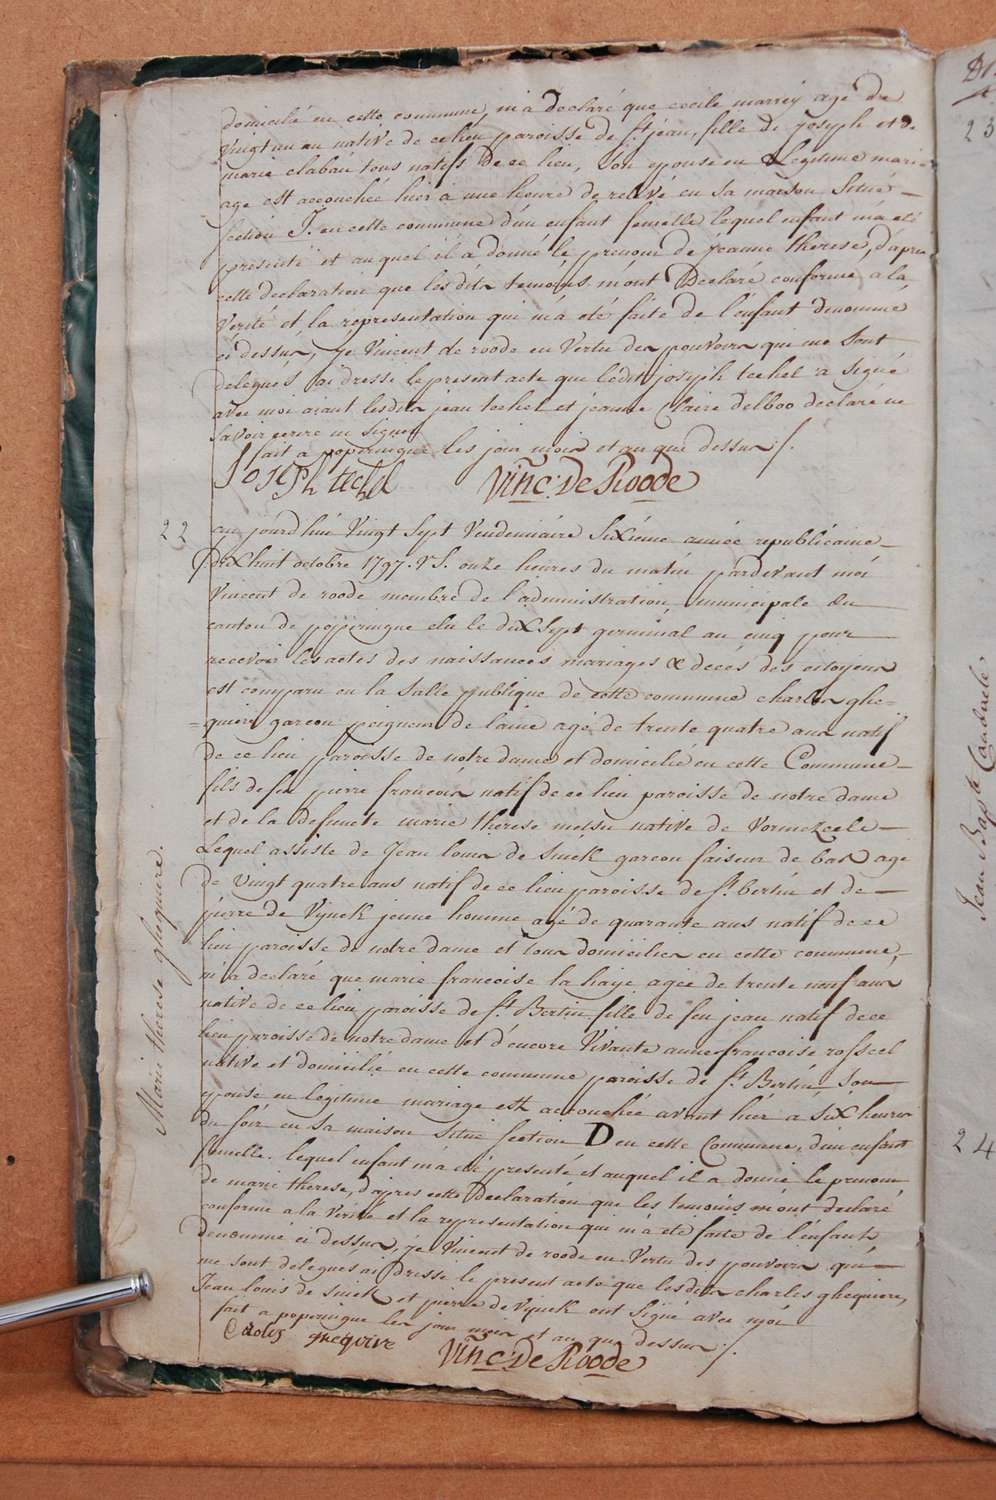 domicilié en cette commune, m'a declaré que cecile marrey agé de
vingt un an native de ce lieu paroisse de St jean, fille de joseph et de
marie clabau tous natifs de ce lieu, son epouse en Legitime mari
age est accouchée hier à une heure de relevé en sa maison Situé
section J. en cette commune d'un enfant femelle lequel enfant m'a eté
presenté et auquel il à donné le prenom de jeanne therese, d'apres
cette declaration que les dits temoins m'ont Declaré conforme a la
verité et la représentation qui m'à eté faite de l'enfant denommé
ci dessus, je Vincent de roode en Vertu des pouvoirs qui me sont
delegués ai dressé le present acte que ledit joseph techel à signé
avec moi aiant lesdits jean techel et jeanne Claire delboo declaré ne
savoir ecrire ni signer
fait à poperingue les jour mois et an que dessus ./.
Joseph techel Vinc: De Roode
22
aujourd'hui Vingt Sept Vendemiaire Sixiéme année republicaine
Dix huit octobre 1797. V.S. onze heures du matin pardevant moi
Vincent de roode membre de l'administration municipale du
canton de poperingue elu le dix sept germinal an cinq pour
recevoir les actes des naissances mariages & decés des citoyens
est comparu en la salle publique de cette commune charles ghe=
=quiere garcon peigneur de laine agé de trente quatre ans natif
de ce lieu paroisse de notre dame et domicilié en cette Commune
fils de feu pierre francois natif de ce lieu paroisse de notre dame
et de la defunte marie therese natve de Vormezeele
Lequel assisté de Jean louis de Smek garcon faiseur de bas agé
de vingt quatre ans natif de ce lieu paroisse de St. Bertin et de
pierre de Vynck jeune homme agé de quarante ans natif de ce
lieu paroisse de notre dame et tous domiciliés en cette commune,
m'à declaré que marie francoise la haye agée de trente neuf ans
native de ce lieu paroisse de St. Bertin fille de feu jean natif de ce
lieu paroisse de notre dame et d'encore Vivante anne francoise rosseel
native et domicilié en cette commune paroisse de St. Bertin son
epouse en legitime mariage est accouchée avant hier à six heures
du soir en sa maison située section D en cette Commune, d'un enfant
femelle. lequel enfant m'à eté presenté et auquel il a donné le prenom
de marie therese, d'apres cette Declaration que les temoins m'ont declaré
conforme a la Verité et la representation qui m'à eté faite de l'enfant
denommé ci dessus, je Vincent de roode en Vertu des pouvoirs qui
me sont delegués ai dressé le present acte que lesdits charles ghequiere,
Jean louis de Smek et pierre de Vynck ont Signé avec moi
fait à poperingue les jour mois et an que dessus ./.
Vinc: De Roode
Marie therese ghequiere.
23
Jean Bapte
24